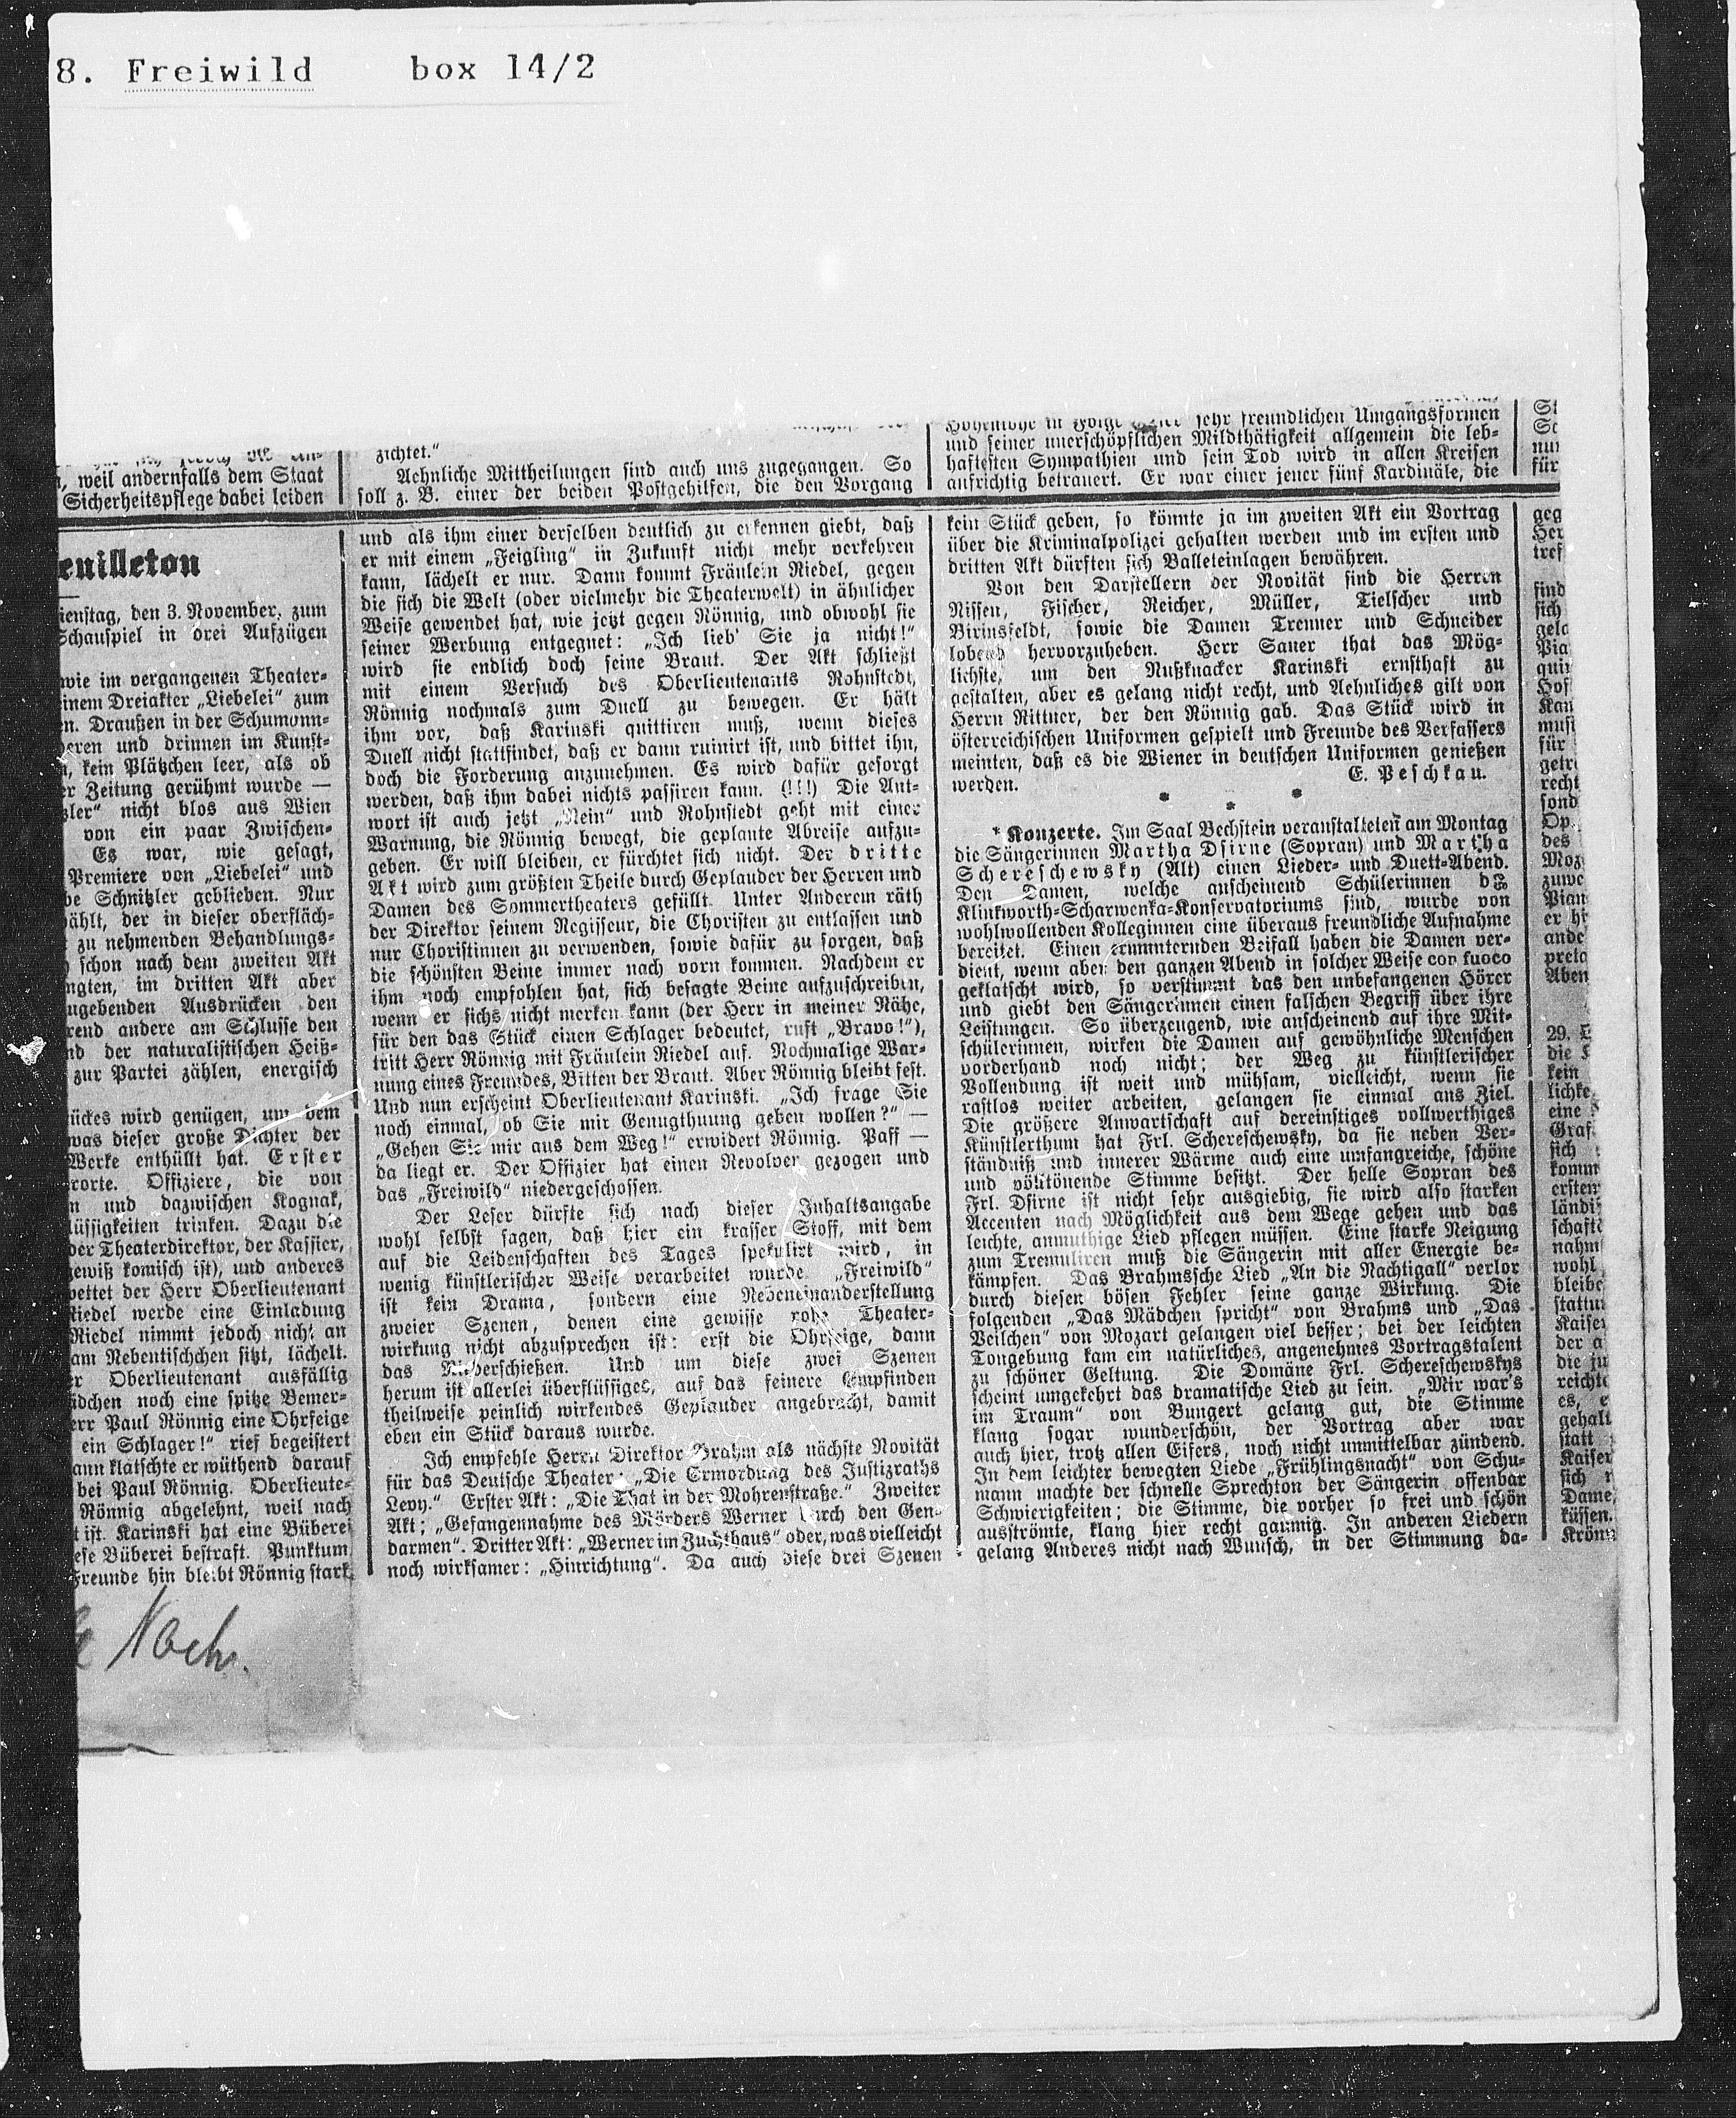 8. Freiwild box 14/2
weil andernfalls dem Staat
Sicherheitspflege dabei leiden
euilleton
ienstag, den 3. November, zum
Schauspiel in drei Aufzügen
wie im vergangenen Theater-
inem Dreiakter „Liebelei" zum
en. Draußen in der Schumann-
eren und drinnen im Kunst-
, kein Plätzchen leer, als ob
er Zeitung gerühmt wurde —
ler" nicht blos aus Wien
von ein paar Zwischen-
Es war, wie gesagt,
Premiere von „Liebelei" und
be Schnitzler geblieben. Nur
ählt, der in dieser oberfläch-
zu nehmenden Behandlungs-
schon nach dem zweiten Akt
ngten, im dritten Akt aber
ugebenden Ausdrücken den
rend andere am Schlusse den
nd der naturalistischen Heiß-
zur Partei zählen, energisch
ückes wird genügen, um dem
was dieser große Dichter der
Werke enthüllt hat. Erster
rorte. Offiziere, die von
n und dazwischen Kognak,
lüssigkeiten trinken. Dazu die
der Theaterdirektor, der Kassier,
gewiß komisch ist), und anderes
wettet der Herr Oberlieutenant
Riedel werde eine Einladung
Riedel nimmt jedoch nicht an
am Nebentischchen sitzt, lächelt.
r Oberlieutenant ausfällig
ädchen noch eine spitze Bemer-
err Paul Rönnig eine Ohrfeige
ein Schlager!" rief begeistert
ann klatschte er wüthend darauf
bei Paul Rönnig. Oberlieute-
Rönnig abgelehnt, weil nach
t ist. Karinski hat eine Büberei
ese Büberei bestraft. Punktum
Freunde hin bleibt Rönnig stark,
Nachr.
zichtet."
Aehnliche Mittheilungen sind auch uns zugegangen. So
soll z. B. einer der beiden Postgehilfen, die den Vorgang
und als ihm einer derselben deutlich zu erkennen giebt, daß
er mit einem „Feigling" in Zukunft nicht mehr verkehren
kann, lächelt er nur. Dann kommt Fräulein Riedel, gegen
die sich die Welt (oder vielmehr die Theaterwelt) in ähnlicher
Weise gewendet hat, wie jetzt gegen Rönnig, und obwohl sie
seiner Werbung entgegnet: „Ich lieb' Sie ja nicht!"
wird sie endlich doch seine Braut. Der Akt schließt
mit einem Versuch des Oberlieutenants Rohnstedt,
Rönnig nochmals zum Duell zu bewegen. Er hält
ihm vor, daß Karinski quittiren muß, wenn dieses
Duell nicht stattfindet, daß er dann ruinirt ist, und bittet ihn,
doch die Forderung anzunehmen. Es wird dafür gesorgt
werden, daß ihm dabei nichts passiren kann. (!!!) Die Ant-
wort ist auch jetzt „Nein" und Rohnstedt geht mit einer
Warnung, die Rönnig bewegt, die geplante Abreise aufzu-
geben. Er will bleiben, er fürchtet sich nicht. Der dritte
Akt wird zum größten Theile durch Geplauder der Herren und
Damen des Sommertheaters gefüllt. Unter Anderem räth
der Direktor seinem Regisseur, die Choristen zu entlassen und
nur Choristinnen zu verwenden, sowie dafür zu sorgen, daß
die schönsten Beine immer nach vorn kommen. Nachdem er
ihm noch empfohlen hat, sich besagte Beine aufzuschreiben,
wenn er sichs nicht merken kann (der Herr in meiner Nähe,
für den das Stück einen Schlager bedeutet, ruft „Bravo!"),
tritt Herr Rönnig mit Fräulein Riedel auf. Nochmalige War-
nung eines Freundes, Bitten der Braut. Aber Rönnig bleibt fest.
Und nun erscheint Oberlieutenant Karinski. „Ich frage Sie
noch einmal, ob Sie mir Genugthuung geben wollen?" —
„Gehen Sie mir aus dem Weg!" erwidert Rönnig. Paff —
da liegt er. Der Offizier hat einen Revolver gezogen und
das „Freiwild" niedergeschossen.
Der Leser dürfte sich nach dieser Inhaltsangabe
wohl selbst sagen, daß hier ein krasser Stoff, mit dem
auf die Leidenschaften des Tages spekulirt wird, in
wenig künstlerischer Weise verarbeitet wurde. „Freiwild"
ist kein Drama, sondern eine Nebeneinanderstellung
zweier Szenen, denen eine gewisse rohe Theater-
wirkung nicht abzusprechen ist: erst die Ohrfeige, dann
das Niederschießen. Und um diese zwei Szenen
herum ist allerlei überflüssiges, auf das feinere Empfinden
theilweise peinlich wirkendes Geplauder angebracht, damit
eben ein Stück daraus wurde.
Ich empfehle Herrn Direktor Brahm als nächste Novität
für das Deutsche Theater: „Die Ermordung des Justizraths
Levy." Erster Akt: „Die That in der Mohrenstraße." Zweiter
Akt: „Gefangennahme des Mörders Werner durch den Gen-
darmen". Dritter Akt: „Werner im Zuchthaus" oder, was vielleicht
noch wirksamer: „Hinrichtung". Da auch diese drei Szenen
sehr freundlichen Umgangsformen
und seiner unerschöpflichen Mildthätigkeit allgemein die leb-
haftesten Sympathien und sein Tod wird in allen Kreisen
aufrichtig betrauert. Er war einer jener fünf Kardinäle, die
kein Stück geben, so könnte ja im zweiten Akt ein Vortrag
über die Kriminalpolizei gehalten werden und im ersten und
dritten Akt dürften sich Balleteinlagen bewähren.
Von den Darstellern der Novität sind die Herren
Nissen, Fischer, Reicher, Müller, Tielscher und
Birinsfeldt, sowie die Damen Trenner und Schneider
lobend hervorzuheben. Herr Sauer that das Mög-
lichste, um den Nußknacker Karinski ernsthaft zu
gestalten, aber es gelang nicht recht, und Aehnliches gilt von
Herrn Rittner, der den Rönnig gab. Das Stück wird in
österreichischen Uniformen gespielt und Freunde des Verfassers
meinten, daß es die Wiener in deutschen Uniformen genießen
werden. E. Peschkau.
* * *
* Konzerte. Im Saal Bechstein veranstalteten am Montag
die Sängerinnen Martha Dsirne (Sopran) und Martha
Schereschewsky (Alt) einen Lieder- und Duett-Abend.
Den Damen, welche anscheinend Schülerinnen des
Klinkworth-Scharwenka-Konservatoriums sind, wurde von
wohlwollenden Kolleginnen eine überaus freundliche Aufnahme
bereitet. Einen ermunternden Beifall haben die Damen ver-
dient, wenn aber den ganzen Abend in solcher Weise con fuoco
geklatscht wird, so verstimmt das den unbefangenen Hörer
und giebt den Sängerinnen einen falschen Begriff über ihre
Leistungen. So überzeugend, wie anscheinend auf ihre Mit-
schülerinnen, wirken die Damen auf gewöhnliche Menschen
vorderhand noch nicht; der Weg zu künstlerischer
Vollendung ist weit und mühsam, vielleicht, wenn sie
rastlos weiter arbeiten, gelangen sie einmal ans Ziel.
Die größere Anwartschaft auf dereinstiges vollwerthiges
Künstlerthum hat Frl. Schereschewsky, da sie neben Ver-
ständniß und innerer Wärme auch eine umfangreiche, schöne
und volltönende Stimme besitzt. Der helle Sopran des
Frl. Dsirne ist nicht sehr ausgiebig, sie wird also starken
Accenten nach Möglichkeit aus dem Wege gehen und das
leichte, anmuthige Lied pflegen müssen. Eine starke Neigung
zum Tremuliren muß die Sängerin mit aller Energie be-
kämpfen. Das Brahmssche Lied „An die Nachtigall" verlor
durch diesen bösen Fehler seine ganze Wirkung. Die
folgenden „Das Mädchen spricht" von Brahms und „Das
Veilchen" von Mozart gelangen viel besser; bei der leichten
Tongebung kam ein natürliches, angenehmes Vortragstalent
zu schöner Geltung. Die Domäne Frl. Schereschewskys
scheint umgekehrt das dramatische Lied zu sein. „Mir war's
im Traum" von Bungert gelang gut, die Stimme
klang sogar wunderschön, der Vortrag aber war
auch hier, trotz allen Eifers, noch nicht unmittelbar zündend.
In dem leichter bewegten Liede „Frühlingsnacht" von Schu-
mann machte der schnelle Sprechton der Sängerin offenbar
Schwierigkeiten; die Stimme, die vorher so frei und schön
ausströmte, klang hier recht gaumig. In anderen Liedern
gelang Anderes nicht nach Wunsch, in der Stimmung da-
nur
für
geg
Her
tref
find
sich
gela
Pia
quin
Hof
Kan
musi
für
getr
recht
sond
Op.
des
Moz
zuwe
Pian
er hi
ande
preta
Aben
29.
die
kein
lichke
eine
Graf
sich
komm
ersten
ländi
schaft
nahm
wohl
bleibe
stattu
Kaiser
der a
die ju
reicht
es, e
gehalt
statt
Kaiser
sich
Dame
küssen.
Krönu